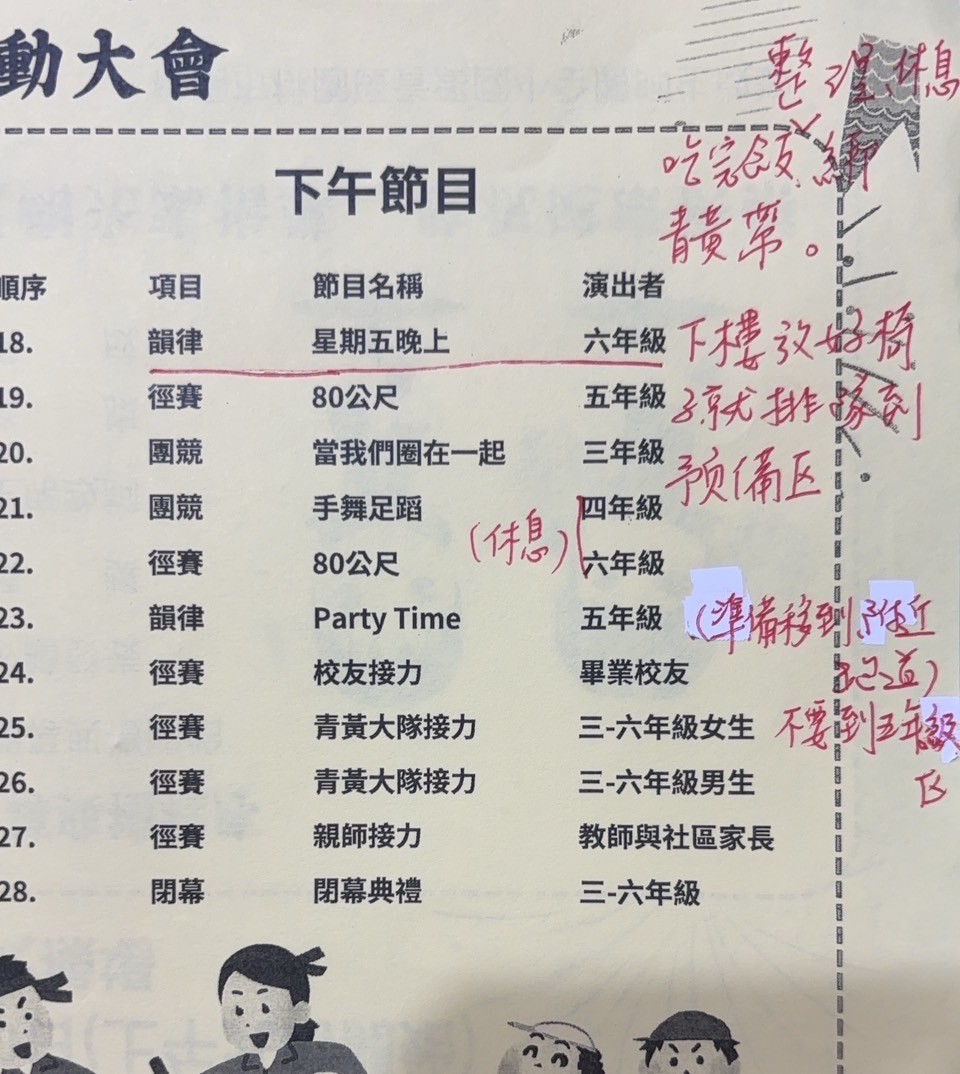 動大會
整理、休息
吃完飯、綁
青黃帶。
下午節目
順序 項目 節目名稱 演出者
18. 韻律 星期五晚上 六年級 下樓放好椅
19. 徑賽 80公尺 五年級 子就排隊到
20. 團競 當我們圈在一起 三年級 預備区
21. 團競 手舞足蹈 四年級
(休息)
22. 徑賽 80公尺 六年級
23. 韻律 Party Time 五年級 (準備移到附近
跑道)
24. 徑賽 校友接力 畢業校友
25. 徑賽 青黃大隊接力 三-六年級女生 不要到五年級
区
26. 徑賽 青黃大隊接力 三-六年級男生
27. 徑賽 親師接力 教師與社區家長
28. 閉幕 閉幕典禮 三-六年級